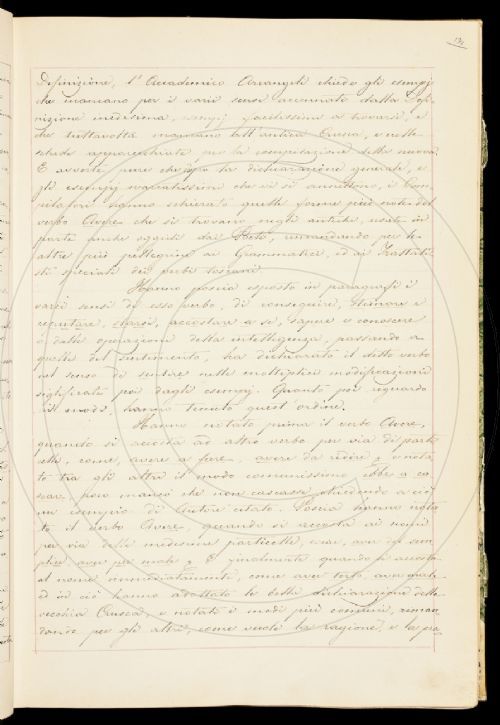 Definizione, l'Accademico Arcangeli chiede gli esempj
che mancano per i varii sensi accennati dalla Defi-
nizione medesima, esempj facilissimi a trovarsi, e
che tuttavolta mancano nell'antica Crusca, e nelle
schede apparecchiate per la compilazione della nuova.
E avverte pure che dopo la dichiarazione generale, e
gli esempj svariatissimi che vi si annettono, i Com-
pilatori hanno schierato quelle forme più note del
verbo Avere che si trovano negli antichi, usate in
parte anche oggidì dai Poeti, rimandando per le
altre più pellegrine ai Grammatici, ed ai Trattati-
sti speciali dei verbi toscani.
Hanno poscia esposto in paragrafi i
varii sensi di esso verbo, di conseguire, stimare e
reputare, darsi, accostare a se, sapere e conoscere
e dalle operazioni della intelligenza, passando a
quelle del sentimento, ha dichiarato il detto verbo
nel senso di sentire nelle molteplici modificazioni
significate poi dagli esempj. Quanto poi riguarda
i modi, hanno tenuto quest'ordine.
Hanno notato prima il verbo Avere,
quando si accosta ad altro verbo per via di parti-
celle, come, avere a fare, avere da ridire e nota-
to tra gli altri il modo comunissimo ebbe a ca-
scar, poco mancò che non cascasse, chiudendo a ciò
un esempio di Autore citato. Poscia hanno nota-
to il verbo Avere, quando si accosta ai nomi
per via delle medesime particelle, come, aver per sem-
plice aver per male. E finalmente quando si accosta
al nome immediatamente, come aver torto, aver male
ed in ciò hanno adottato le belle dichiarazioni della
vecchia Crusca, e notati i modi più comuni, riman-
dando per gli altri, come vuole la ragione, e la pra-